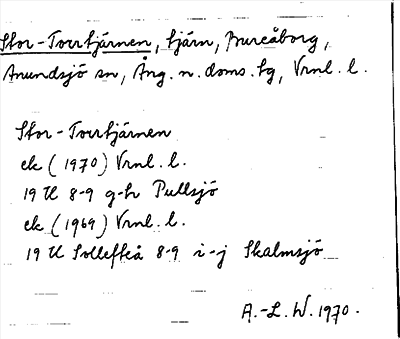 Stor-Torrtjärnen, tjärn, Bureåborg,
Anundsjö sn, Ång. n. doms. hg, Vrnl. l.
Stor-Torrtjärnen
ek (1970) Vrnl. l.
19 H 8-9 g-h Pullsjö
ek (1969) Vrnl. l.
19 H Sollefteå 8-9 i-j Skalmsjö
A.-L. W. 1970.